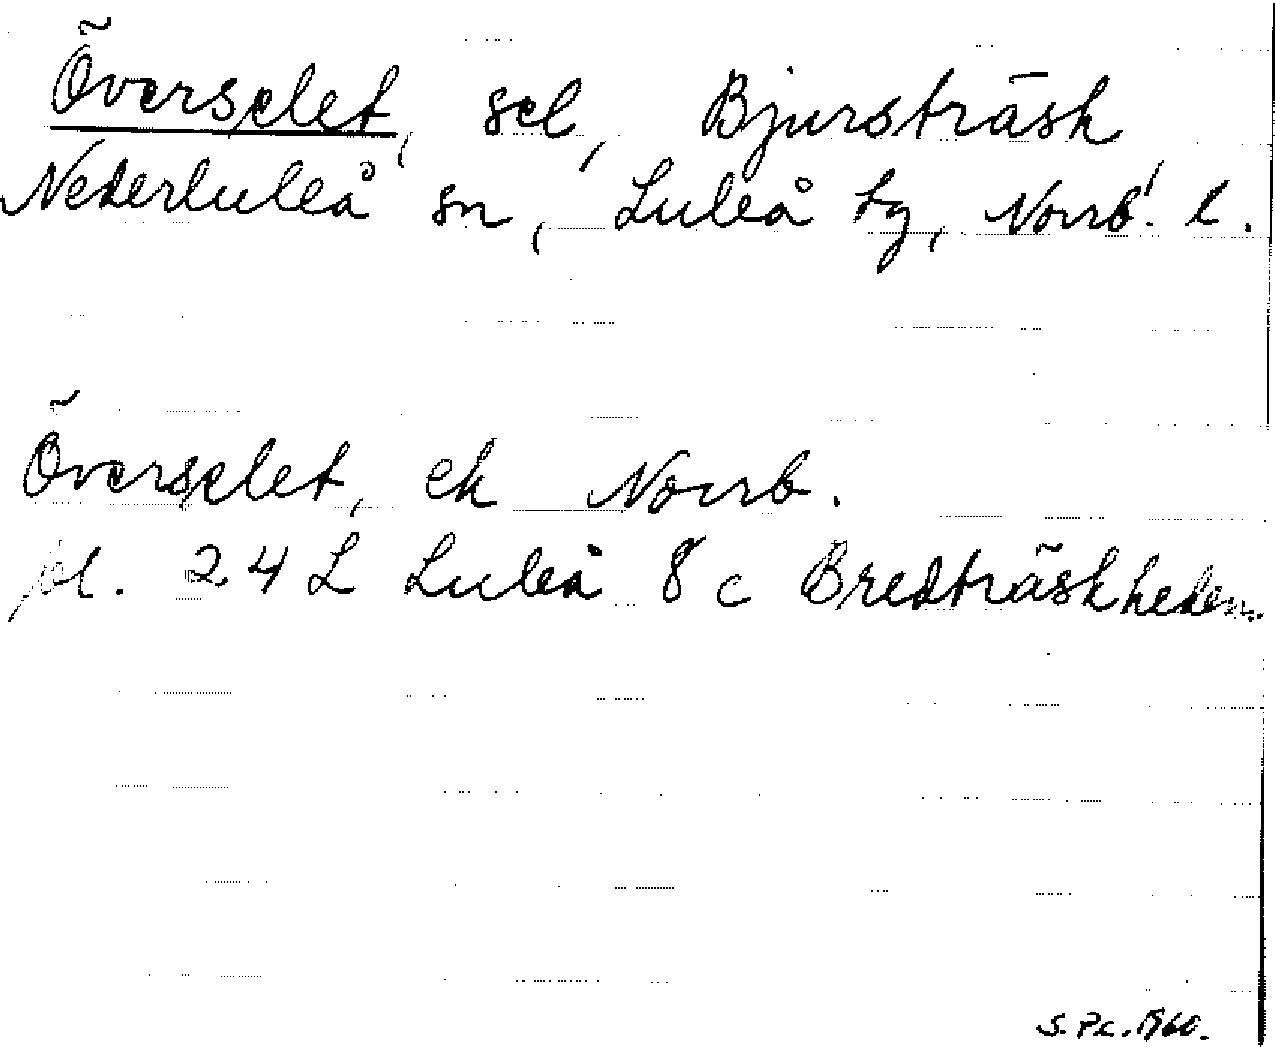 Överselet, sel, Bjursträsk
Nederluleå sn, Luleå tg, Norrb. l.
Överselet, ek Norrb.
bl. 24 L Luleå 8 c Bredträskheden.
S. Pc. 1960.